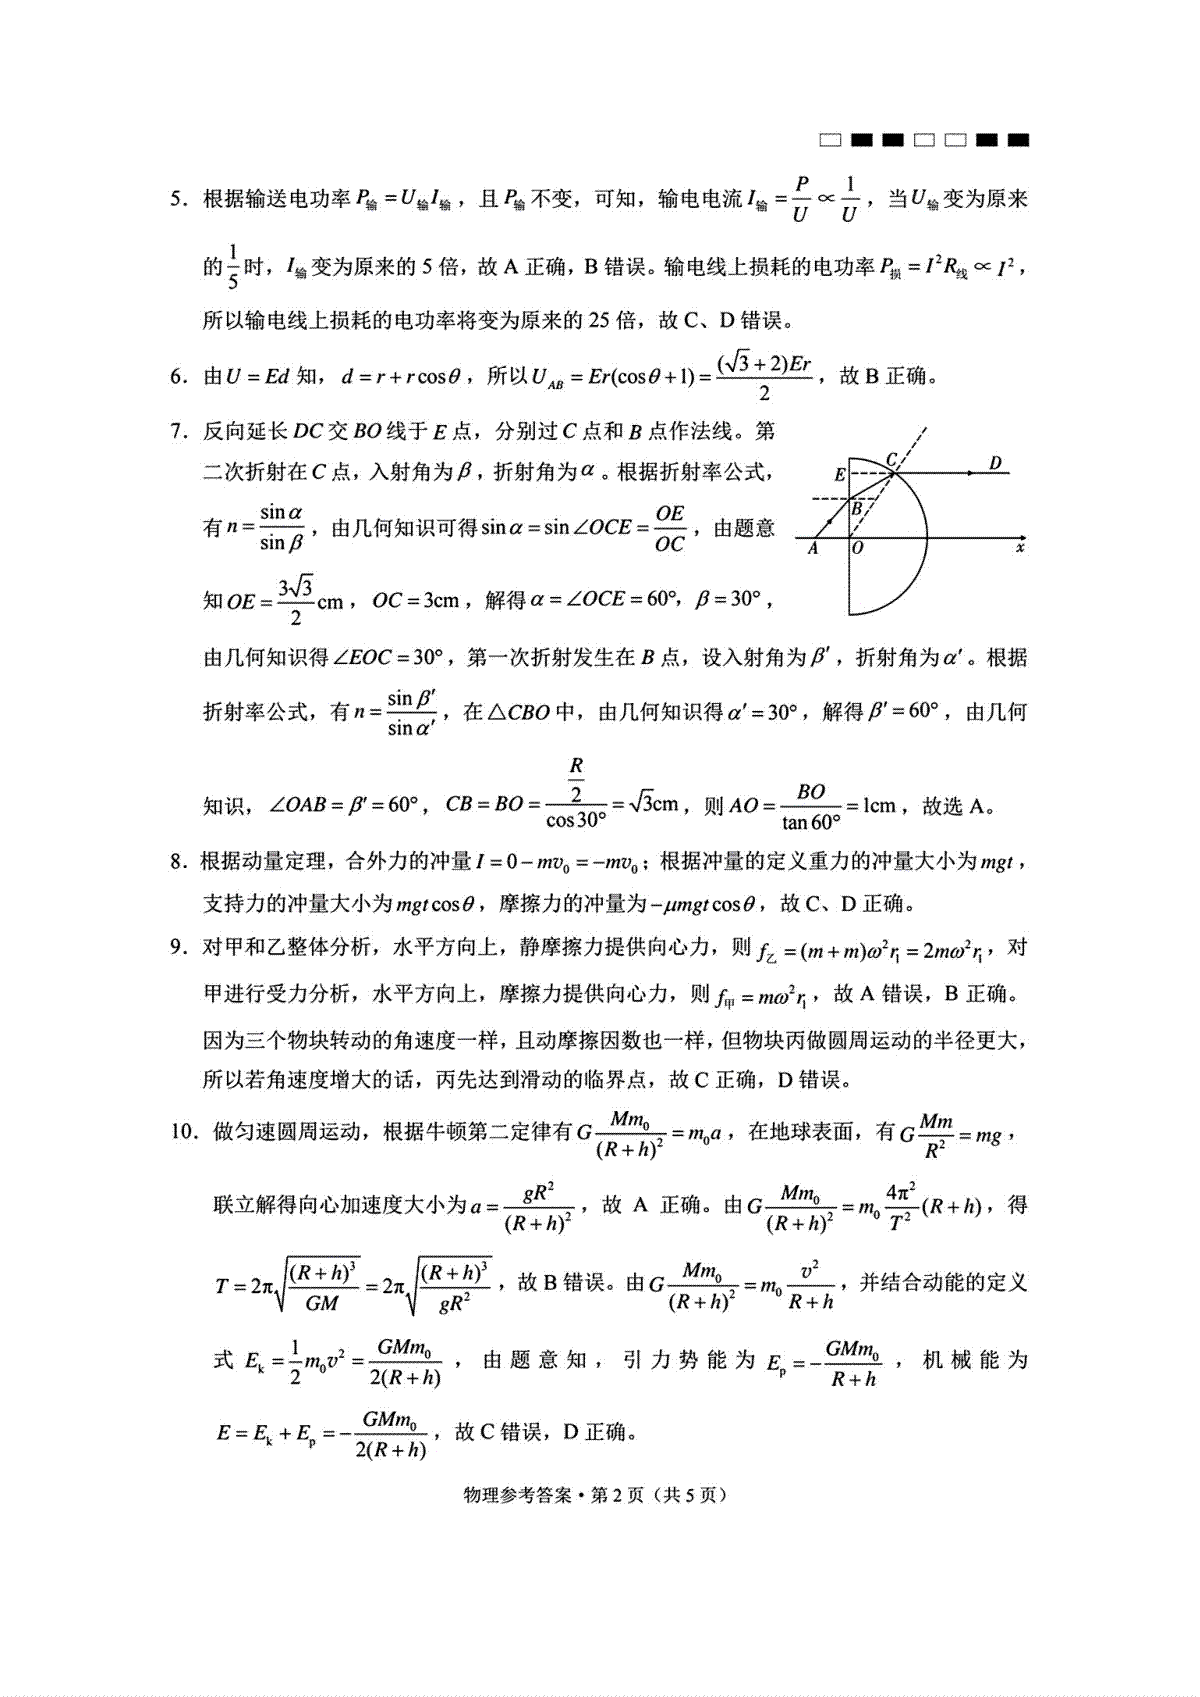 5．根据输送电功率 P输 = U输I输，且 P输 不变，可知，输电电流 I输 = P/U ∝ 1/U，当 U输 变为原来
的 1/5 时，I输 变为原来的 5 倍，故 A 正确，B 错误。输电线上损耗的电功率 P损 = I²R线 ∝ I²，
所以输电线上损耗的电功率将变为原来的 25 倍，故 C、D 错误。
6．由 U = Ed 知，d = r + r cosθ，所以 U_AB = Er(cosθ + 1) = (√3 + 2)Er/2，故 B 正确。
7．反向延长 DC 交 BO 线于 E 点，分别过 C 点和 B 点作法线。第
二次折射在 C 点，入射角为 β，折射角为 α。根据折射率公式，
有 n = sinα/sinβ，由几何知识可得 sinα = sin∠OCE = OE/OC，由题意
知 OE = 3√3/2 cm，OC = 3cm，解得 α = ∠OCE = 60°，β = 30°，
E C D
B
A O x
由几何知识得 ∠EOC = 30°，第一次折射发生在 B 点，设入射角为 β′，折射角为 α′。根据
折射率公式，有 n = sinβ′/sinα′，在 △CBO 中，由几何知识得 α′ = 30°，解得 β′ = 60°，由几何
知识，∠OAB = β′ = 60°，CB = BO = (R/2)/cos30° = √3cm，则 AO = BO/tan60° = 1cm，故选 A。
8．根据动量定理，合外力的冲量 I = 0 − mv₀ = −mv₀；根据冲量的定义重力的冲量大小为 mgt，
支持力的冲量大小为 mgt cosθ，摩擦力的冲量为 −μmgt cosθ，故 C、D 正确。
9．对甲和乙整体分析，水平方向上，静摩擦力提供向心力，则 f乙 = (m + m)ω²r₁ = 2mω²r₁，对
甲进行受力分析，水平方向上，摩擦力提供向心力，则 f甲 = mω²r₁，故 A 错误，B 正确。
因为三个物块转动的角速度一样，且动摩擦因数也一样，但物块丙做圆周运动的半径更大，
所以若角速度增大的话，丙先达到滑动的临界点，故 C 正确，D 错误。
10．做匀速圆周运动，根据牛顿第二定律有 G Mm₀/(R + h)² = m₀a，在地球表面，有 G Mm/R² = mg，
联立解得向心加速度大小为 a = gR²/(R + h)²，故 A 正确。由 G Mm₀/(R + h)² = m₀ 4π²/T² (R + h)，得
T = 2π√((R + h)³/GM) = 2π√((R + h)³/gR²)，故 B 错误。由 G Mm₀/(R + h)² = m₀ v²/(R + h)，并结合动能的定义
式 E_k = 1/2 m₀v² = GMm₀/2(R + h)，由题意知，引力势能为 E_p = −GMm₀/(R + h)，机械能为
E = E_k + E_p = −GMm₀/2(R + h)，故 C 错误，D 正确。
物理参考答案·第 2 页（共 5 页）